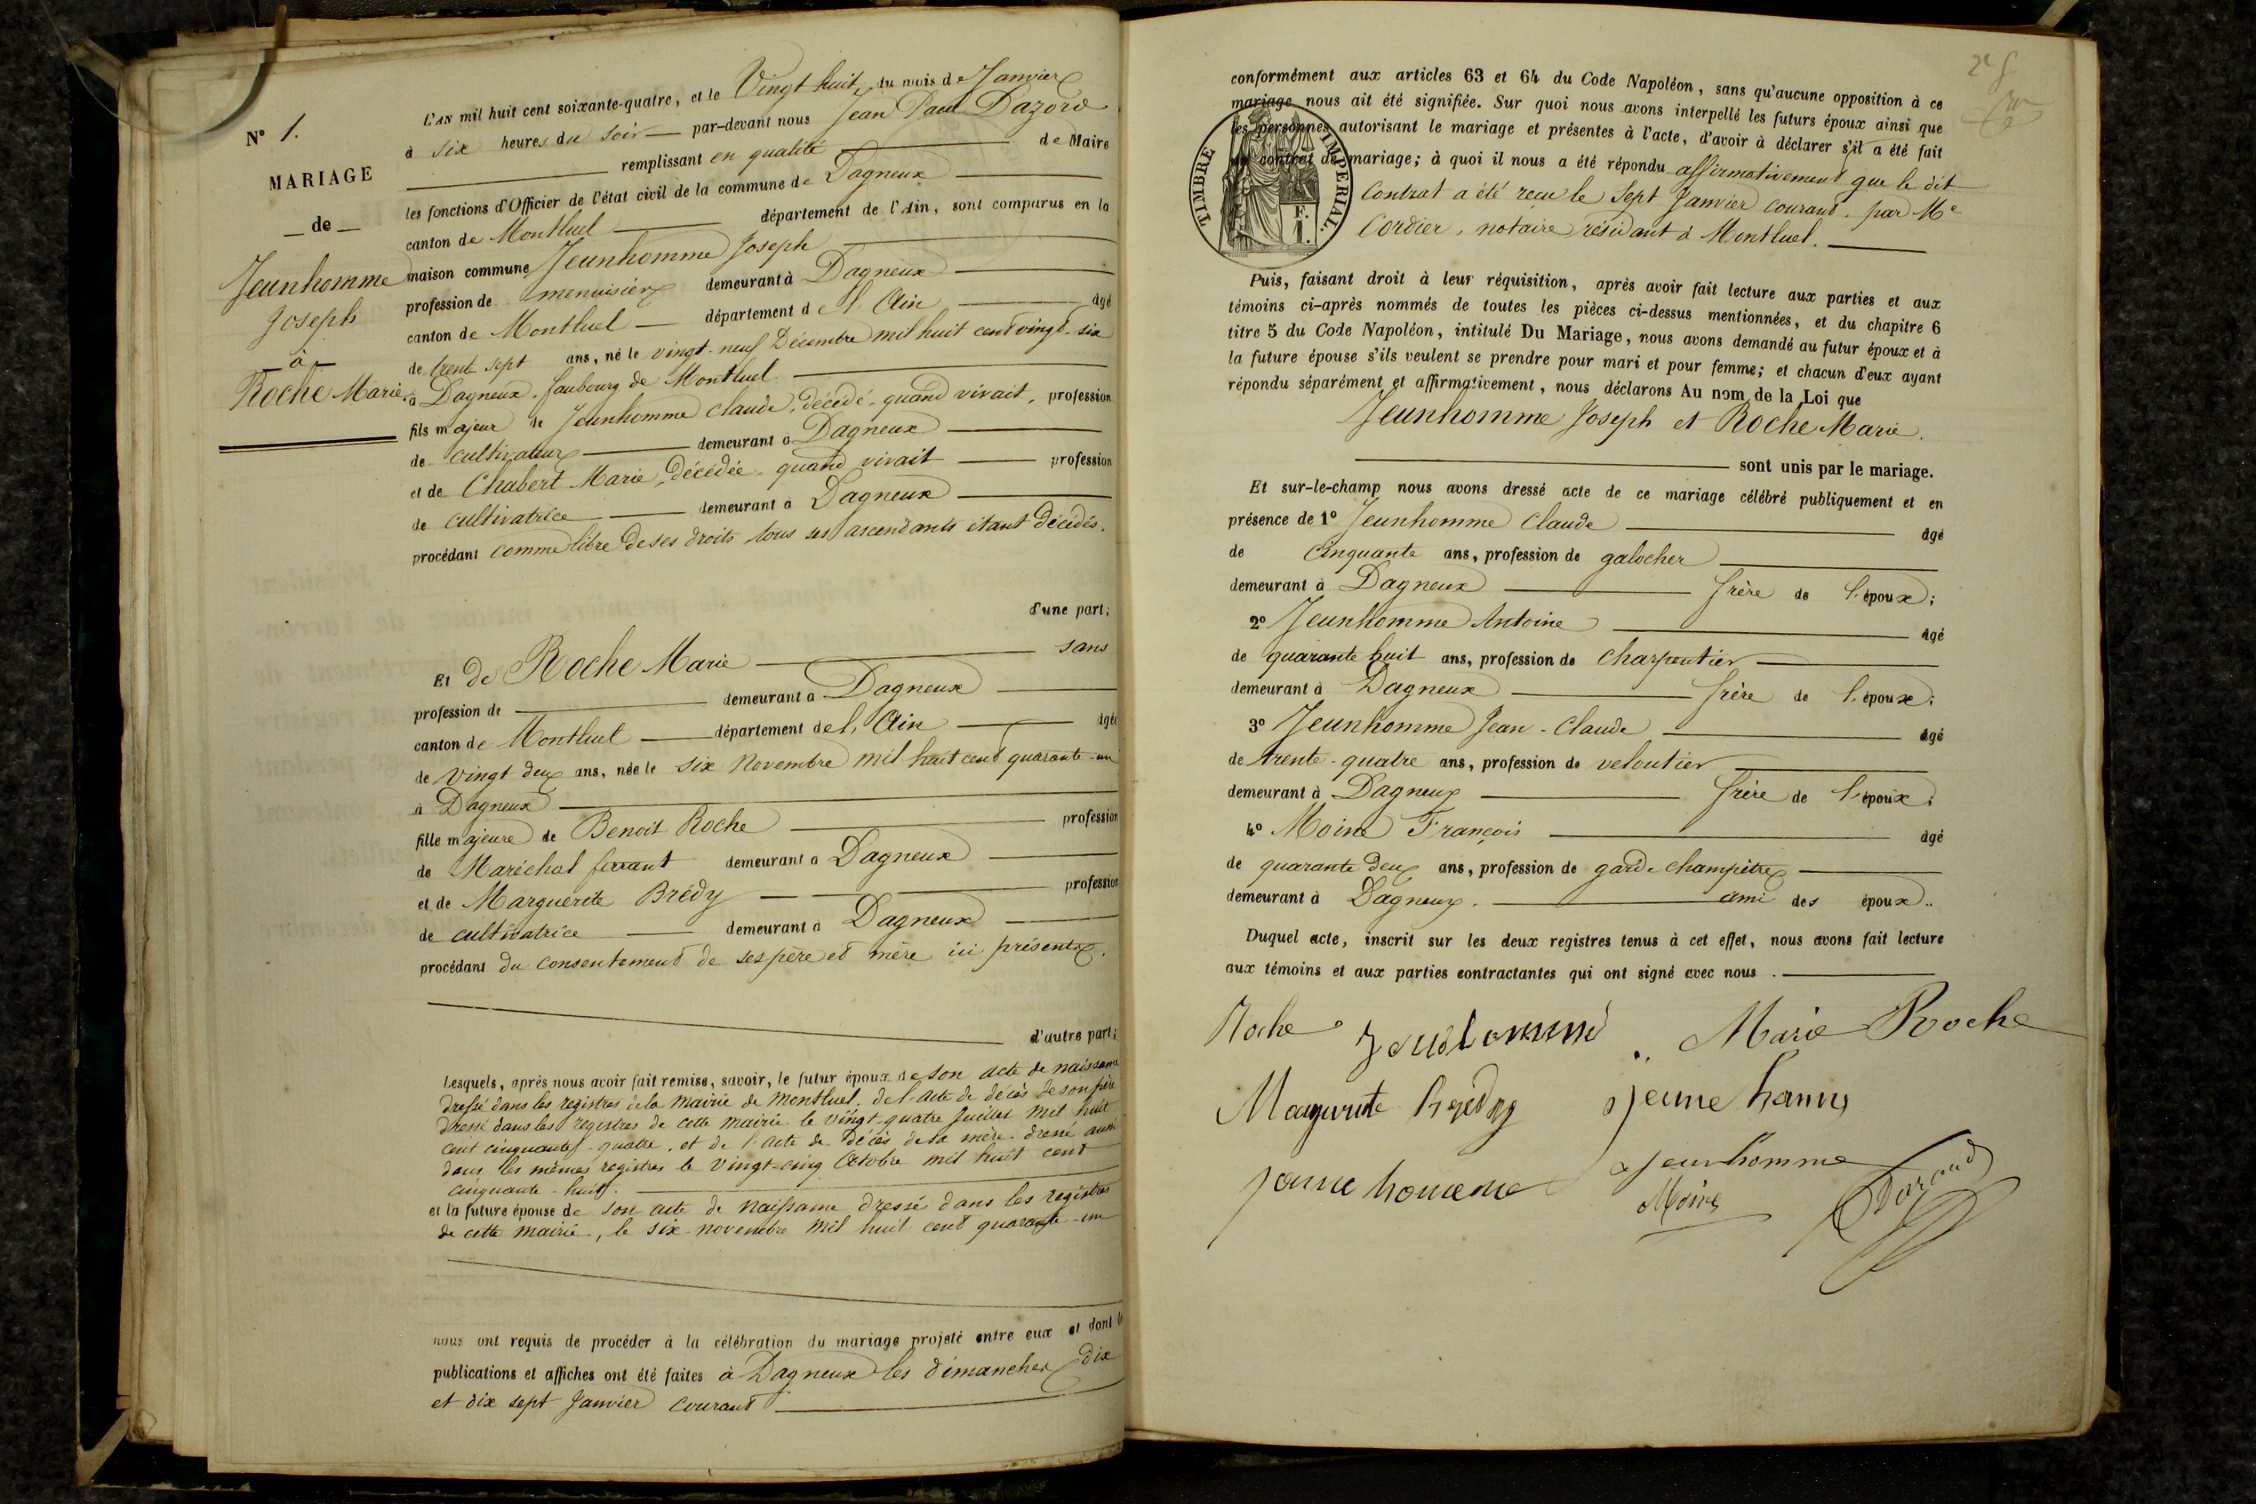 N° 1.
MARIAGE
de
Jeunhomme
Joseph
à
Roche Marie.
L'AN mil huit cent soixante-quatre, et le Vingt huit du mois de Janvier
à six heures du soir par-devant nous Jean Paul
remplissant en qualité de Maire
les fonctions d'Officier de l'état civil de la commune de Dagneux
canton de Montluel département de l'Ain, sont comparus en la
maison commune Jeunhomme Joseph
profession de menuisier demeurant à Dagneux
canton de Montluel département de l'Ain âgé
de trent sept ans, né le vingt-neuf Décembre mil huit cent vingt-six
à Dagneux, faubourg de Montluel
fils majeur de Jeunhomme Claude, décédé, quand vivait, profession
de cultivateur demeurant à Dagneux
et de Chabert Marie, décédée, quand vivait profession
de cultivatrice demeurant à Dagneux
procédant comme libre de ses droits, tous ses ascendants étant décédés.
d'une part;
Et de Roche Marie sans
profession de demeurant à Dagneux
canton de Montluel département de l'Ain âgée
de vingt deux ans, née le six Novembre mil huit cent quarante-un
à Dagneux
fille majeure de Benoit Roche profession
de Maréchal ferrant demeurant à Dagneux
et de Marguerite Brédy profession
de cultivatrice demeurant à Dagneux
procédant du consentement de ses père et mère ici présents.
d'autre part;
Lesquels, après nous avoir fait remise, savoir, le futur époux de son acte de naissance
dressé dans les registres de la mairie de Montluel, de l'acte de décès de son père
dressé dans les registres de cette mairie le vingt-quatre Juillet mil huit
cent cinquante-quatre, et de l'acte de décès de la mère dressé aussi
dans les mêmes registres le vingt-cinq Octobre mil huit cent
cinquante-huit.
et la future épouse de son acte de naissance dressé dans les registres
de cette mairie, le six novembre mil huit cent quarante-un
nous ont requis de procéder à la célébration du mariage projeté entre eux et dont les
publications et affiches ont été faites à Dagneux les dimanches dix
et dix sept Janvier courant
conformément aux articles 63 et 64 du Code Napoléon, sans qu'aucune opposition à ce
mariage nous ait été signifiée. Sur quoi nous avons interpellé les futurs époux ainsi que
les personnes autorisant le mariage et présentes à l'acte, d'avoir à déclarer s'il a été fait
un contrat de mariage; à quoi il nous a été répondu affirmativement que le dit
Contrat a été reçu le sept Janvier courant, par Me
Cordier, notaire résidant à Montluel.
TIMBRE IMPERIAL.
F.
1.
Puis, faisant droit à leur réquisition, après avoir fait lecture aux parties et aux
témoins ci-après nommés de toutes les pièces ci-dessus mentionnées, et du chapitre 6
titre 5 du Code Napoléon, intitulé Du Mariage, nous avons demandé au futur époux et à
la future épouse s'ils veulent se prendre pour mari et pour femme; et chacun d'eux ayant
répondu séparément et affirmativement, nous déclarons Au nom de la Loi que
Jeunhomme Joseph et Roche Marie.
sont unis par le mariage.
Et sur-le-champ nous avons dressé acte de ce mariage célébré publiquement et en
présence de 1° Jeunhomme Claude âgé
de Cinquante ans, profession de galocher
demeurant à Dagneux frère de l'époux;
2° Jeunhomme Antoine âgé
de quarante huit ans, profession de charpentier
demeurant à Dagneux frère de l'époux;
3° Jeunhomme Jean-Claude âgé
de trente-quatre ans, profession de veloutier
demeurant à Dagneux frère de l'époux;
4° Moine François âgé
de quarante deux ans, profession de garde champêtre
demeurant à Dagneux. ami des époux.
Duquel acte, inscrit sur les deux registres tenus à cet effet, nous avons fait lecture
aux témoins et aux parties contractantes qui ont signé avec nous.
Roche Marie Roche
Jeunhomme
Moine